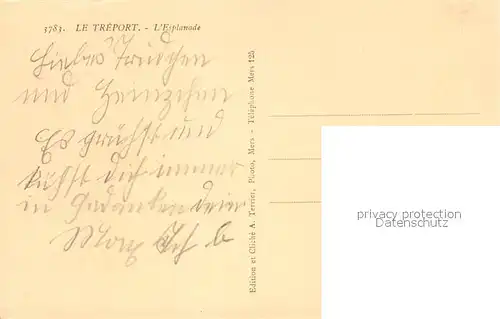 3783. LE TRÉPORT. - L'Esplanade
Liebes Trudchen
und Heinzchen
Es grüsst und
küsst Dich immer
in Gedanken dein
Max
Edition et Cliché A. Terrier, Photo, Mers - Téléphone Mers 125
privacy protection
watermark